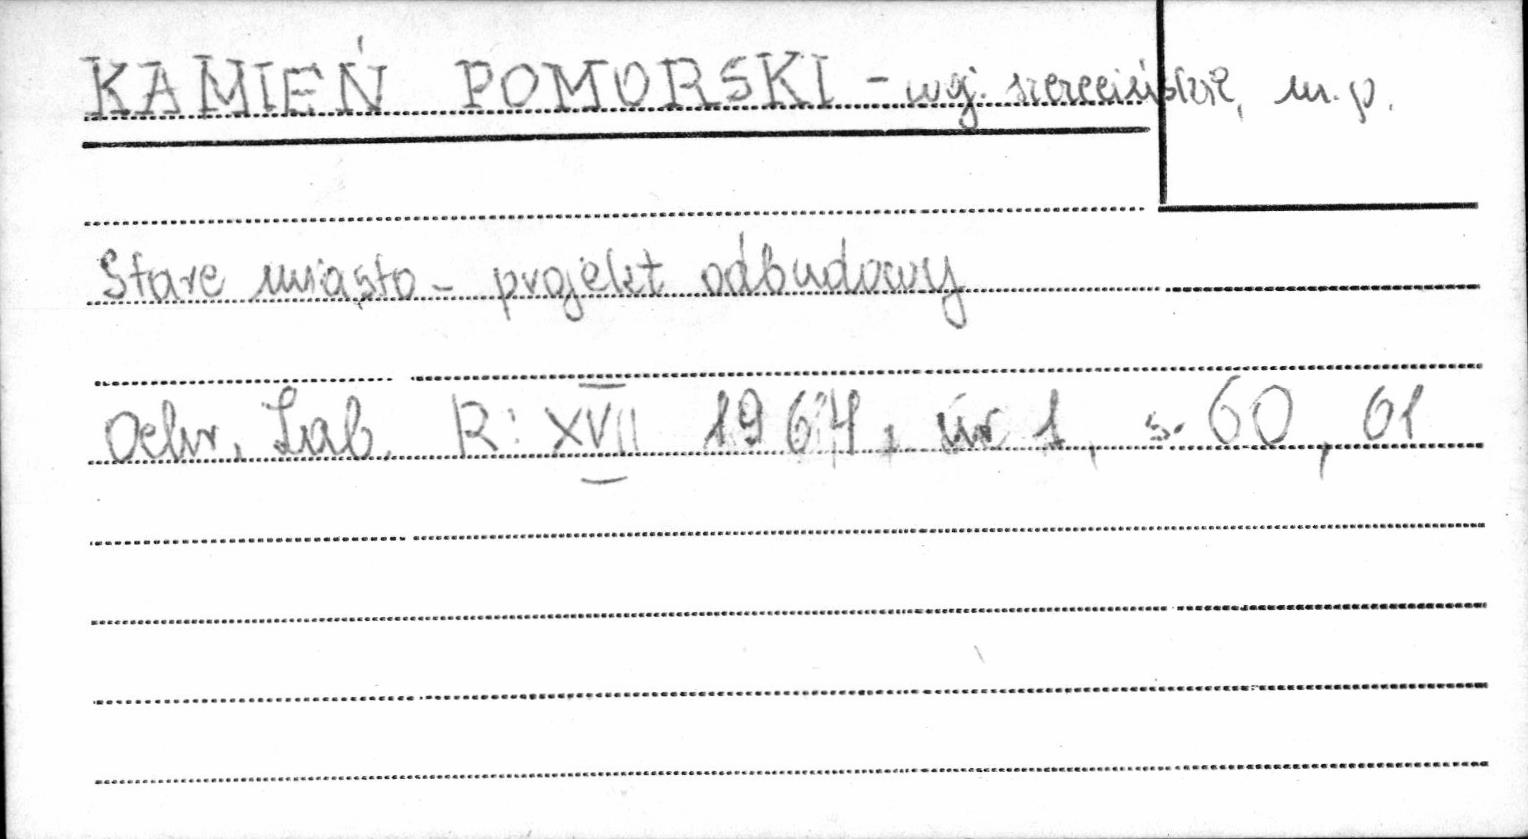 KAMIEŃ POMORSKI - woj. szczecińskie, m.p.
Stare miasto - projekt odbudowy
Ochr. Zab. R: XVII 1964, nr 1, s. 60, 61